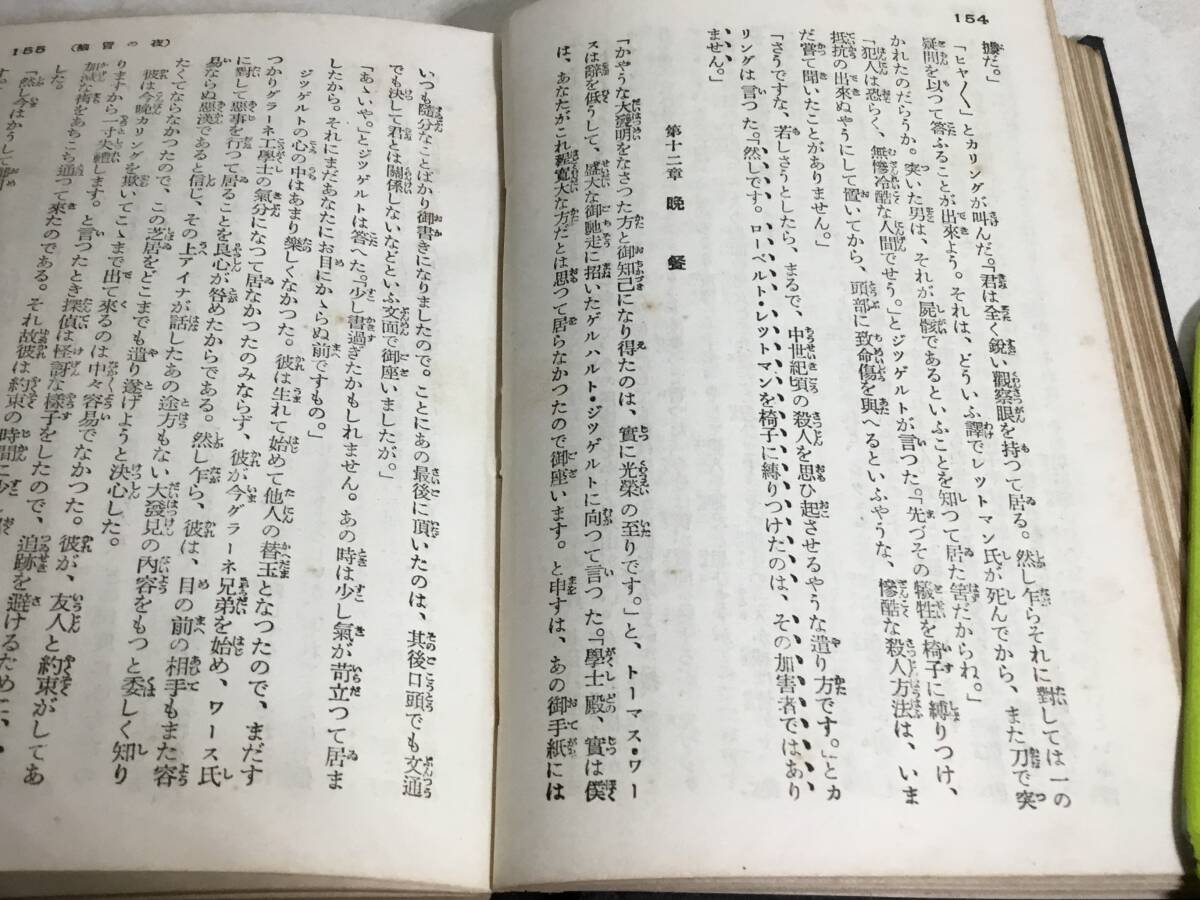 154
據だ。」
「ヒヤ〳〵」とカリングが叫んだ。「君は全く鋭い觀察眼を持つて居る。然し乍らそれに對しては一の
疑問を以つて答ふることが出來よう。それは、どういふ譯でレットマン氏が死んでから、また刀で突
かれたのだらうか。突いた男は、それが屍骸であるといふことを知つて居た筈だからね。」
「犯人は恐らく、無慘冷酷な人間でせう。」とジツゲルトが言つた。「先づその犠牲を椅子に縛りつけ、
抵抗の出來ぬやうにして置いてから、頭部に致命傷を與へるといふやうな、慘酷な殺人方法は、いま
だ嘗て聞いたことがありません。」
「さうですな、若しさうとしたら、まるで、中世紀頃の殺人を思ひ起させるやうな遣り方です。」とカ
リングは言つた。「然しです。ローベルト・レットマンを椅子に縛りつけたのは、その加害者ではあり
ません。」
第十二章 晩餐
「かやうな大發明をなさつた方と御知己になり得たのは、實に光榮の至りです。」と、トーマス・ワー
スは辭を低うして、盛大な御馳走に招いたゲルハルト・ジツゲルトに向つて言つた。「學士殿、實は僕
は、あなたがこれ程寛大な方だとは思つて居らなかつたので御座います。と申すは、あの御手紙には
155 (夜の冒險)
いつも隨分なことばかり御書きになりましたので。ことにあの最後に頂いたのは、其後口頭でも文通
でも決して君とは關係しないなどといふ文面で御座いましたが。」
「あゝいや。」とジツゲルトは答へた。「少し書過ぎたかもしれません。あの時は少し氣が苛立つて居ま
したから。それにまだあなたにお目にかゝらぬ前ですもの。」
ジツゲルトの心の中はあまり樂しくなかつた。彼は生れて始めて他人の替玉となつたので、まだす
つかりグラーネ工學士の氣分になつて居なかつたのみならず、彼が今グラーネ兄弟を始め、ワース氏
に對して惡事を行つて居ることを良心が咎めたからである。然し乍ら、彼は、目の前の相手もまた容
易ならぬ惡漢であると信じ、その上アイナが話したあの途方もない大發見の内容をもつと委しく知り
たくてならなかつたので、この芝居をどこまでも遣り遂げようと決心した。
彼は今晩カリングを欺いてこゝまで出て來るのは中々容易でなかつた。彼が、友人と約束がしてあ
りますから一寸失禮します。と言つたとき探偵は怪訝な樣子をしたので、追跡を避けるために、
加減な街をあちこち通つて來たのである。それ故彼は約束の時間に少し
した。
「然し今はかうして御